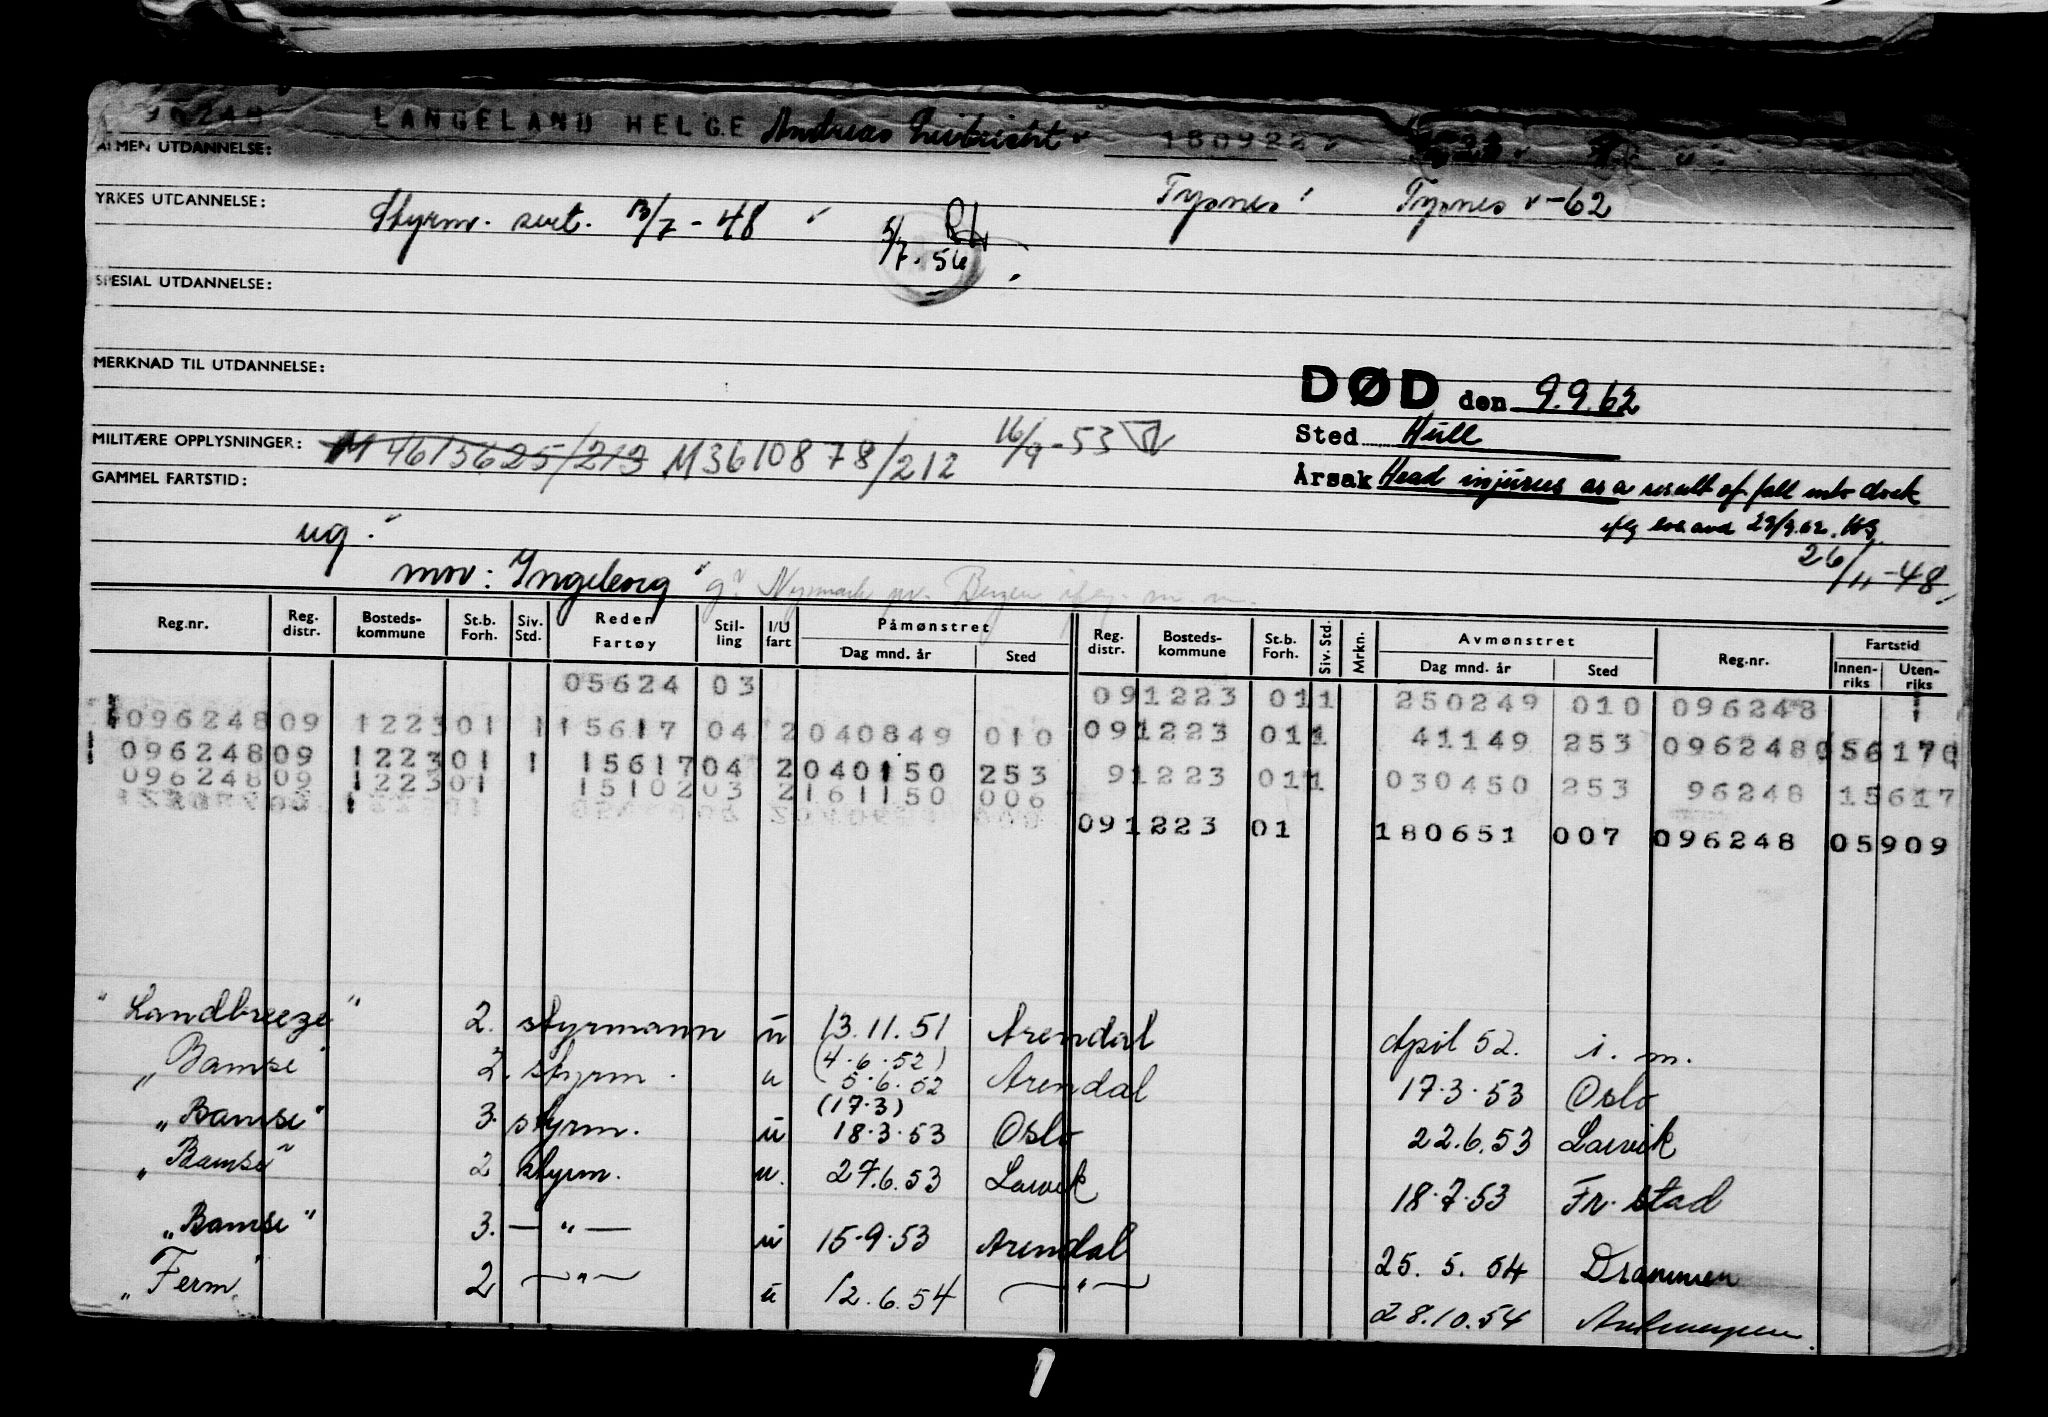 LANGELAND HELGE Andreas 180922
ALMEN UTDANNELSE:
YRKES UTDANNELSE: Styrm. sert. 13/7-48 Tysnes Tysnes -62
5/7.56
SPESIAL UTDANNELSE:
MERKNAD TIL UTDANNELSE:
DØD den 9.9.62
Sted Hull
Årsak Head injuries as a result of fall into dock
MILITÆRE OPPLYSNINGER: M4615625/213 M3610878/212 16/9-53
GAMMEL FARTSTID:
ug.
26/11-48
mor: Ingeborg
Reg.nr. Reg. distr. Bosteds-kommune St.b. Forh. Siv. Std. Reden Fartøy Stil-ling I/U fart Påmønstret Dag mnd. år Sted Reg. distr. Bosteds-kommune St.b. Forh. Siv. Std. Mrkn. Avmønstret Dag mnd. år Sted Reg.nr. Fartstid Innen-riks Uten-riks
05624 03 091223 011 250249 010 096248
096248 09 1223 01 1 15617 04 2 040849 010 091223 011 41149 253 096248 056170
096248 09 1223 01 1 15617 04 2 040150 253 91223 011 030450 253 96248 15617
096248 09 1223 01 15102 03 2 161150 006
091223 01 180651 007 096248 05909
"Landbreeze" 2. styrmann u 13.11.51 Arendal April 52. i. m.
"Bamse" 2. styrm. u (4.6.52) 5.6.52 Arendal 17.3.53 Oslo
"Bamse" 3. styrm. u (17.3) 18.3.53 Oslo 22.6.53 Larvik
"Bamse" 2 styrm. u. 27.6.53 Larvik 18.7.53 Fr. stad
"Bamse" 3. — " — u 15.9.53 Arendal 25. 5. 54 Drammen
"Ferm" 2 — " — u 12.6.54 — " — 28.10.54 Antwerpen